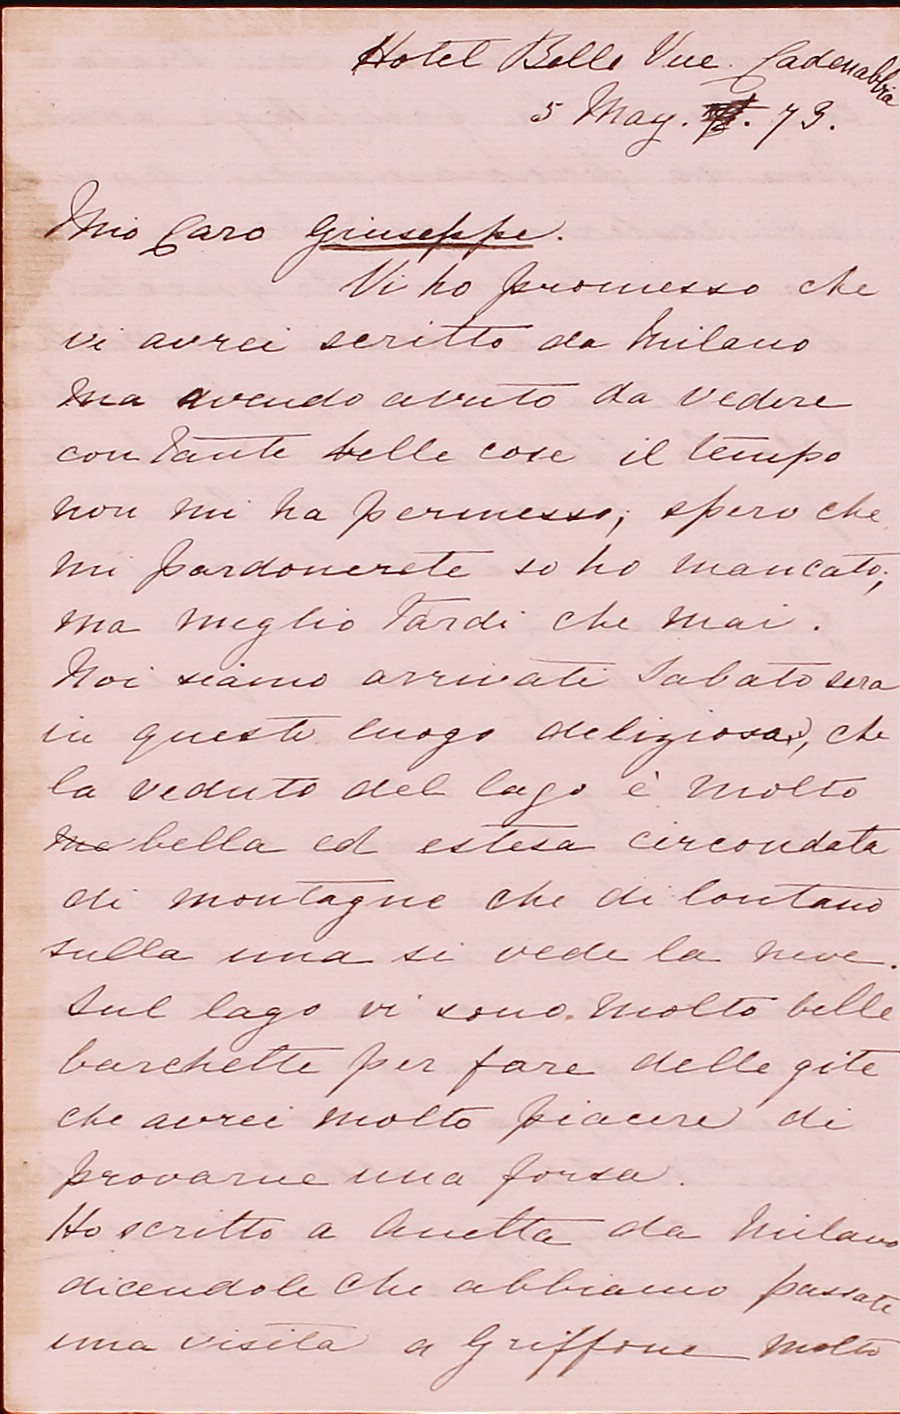 Hotel Belle Vue. Cadenabbia
5 May. 73.
Mio Caro Giuseppe.
Vi ho promesso che
vi avrei scritto da Milano
ma avendo avuto da vedere
con tante belle cose il tempo
non mi ha permesso; spero che
mi pardonerete so ho mancato;
ma meglio tardi che mai.
Noi siamo arrivati Sabato sera
in questo luogo delizioso, che
la veduto del lago è molto
bella ed estesa circondata
di montagne che di lontano
sulla una si vede la neve.
Sul lago vi sono molto belle
barchette per fare delle gite
che avrei molto piacere di
provarne una forsa.
Ho scritto a Anetta da Milano
dicendole che abbiamo passate
una visita a Griffone molto